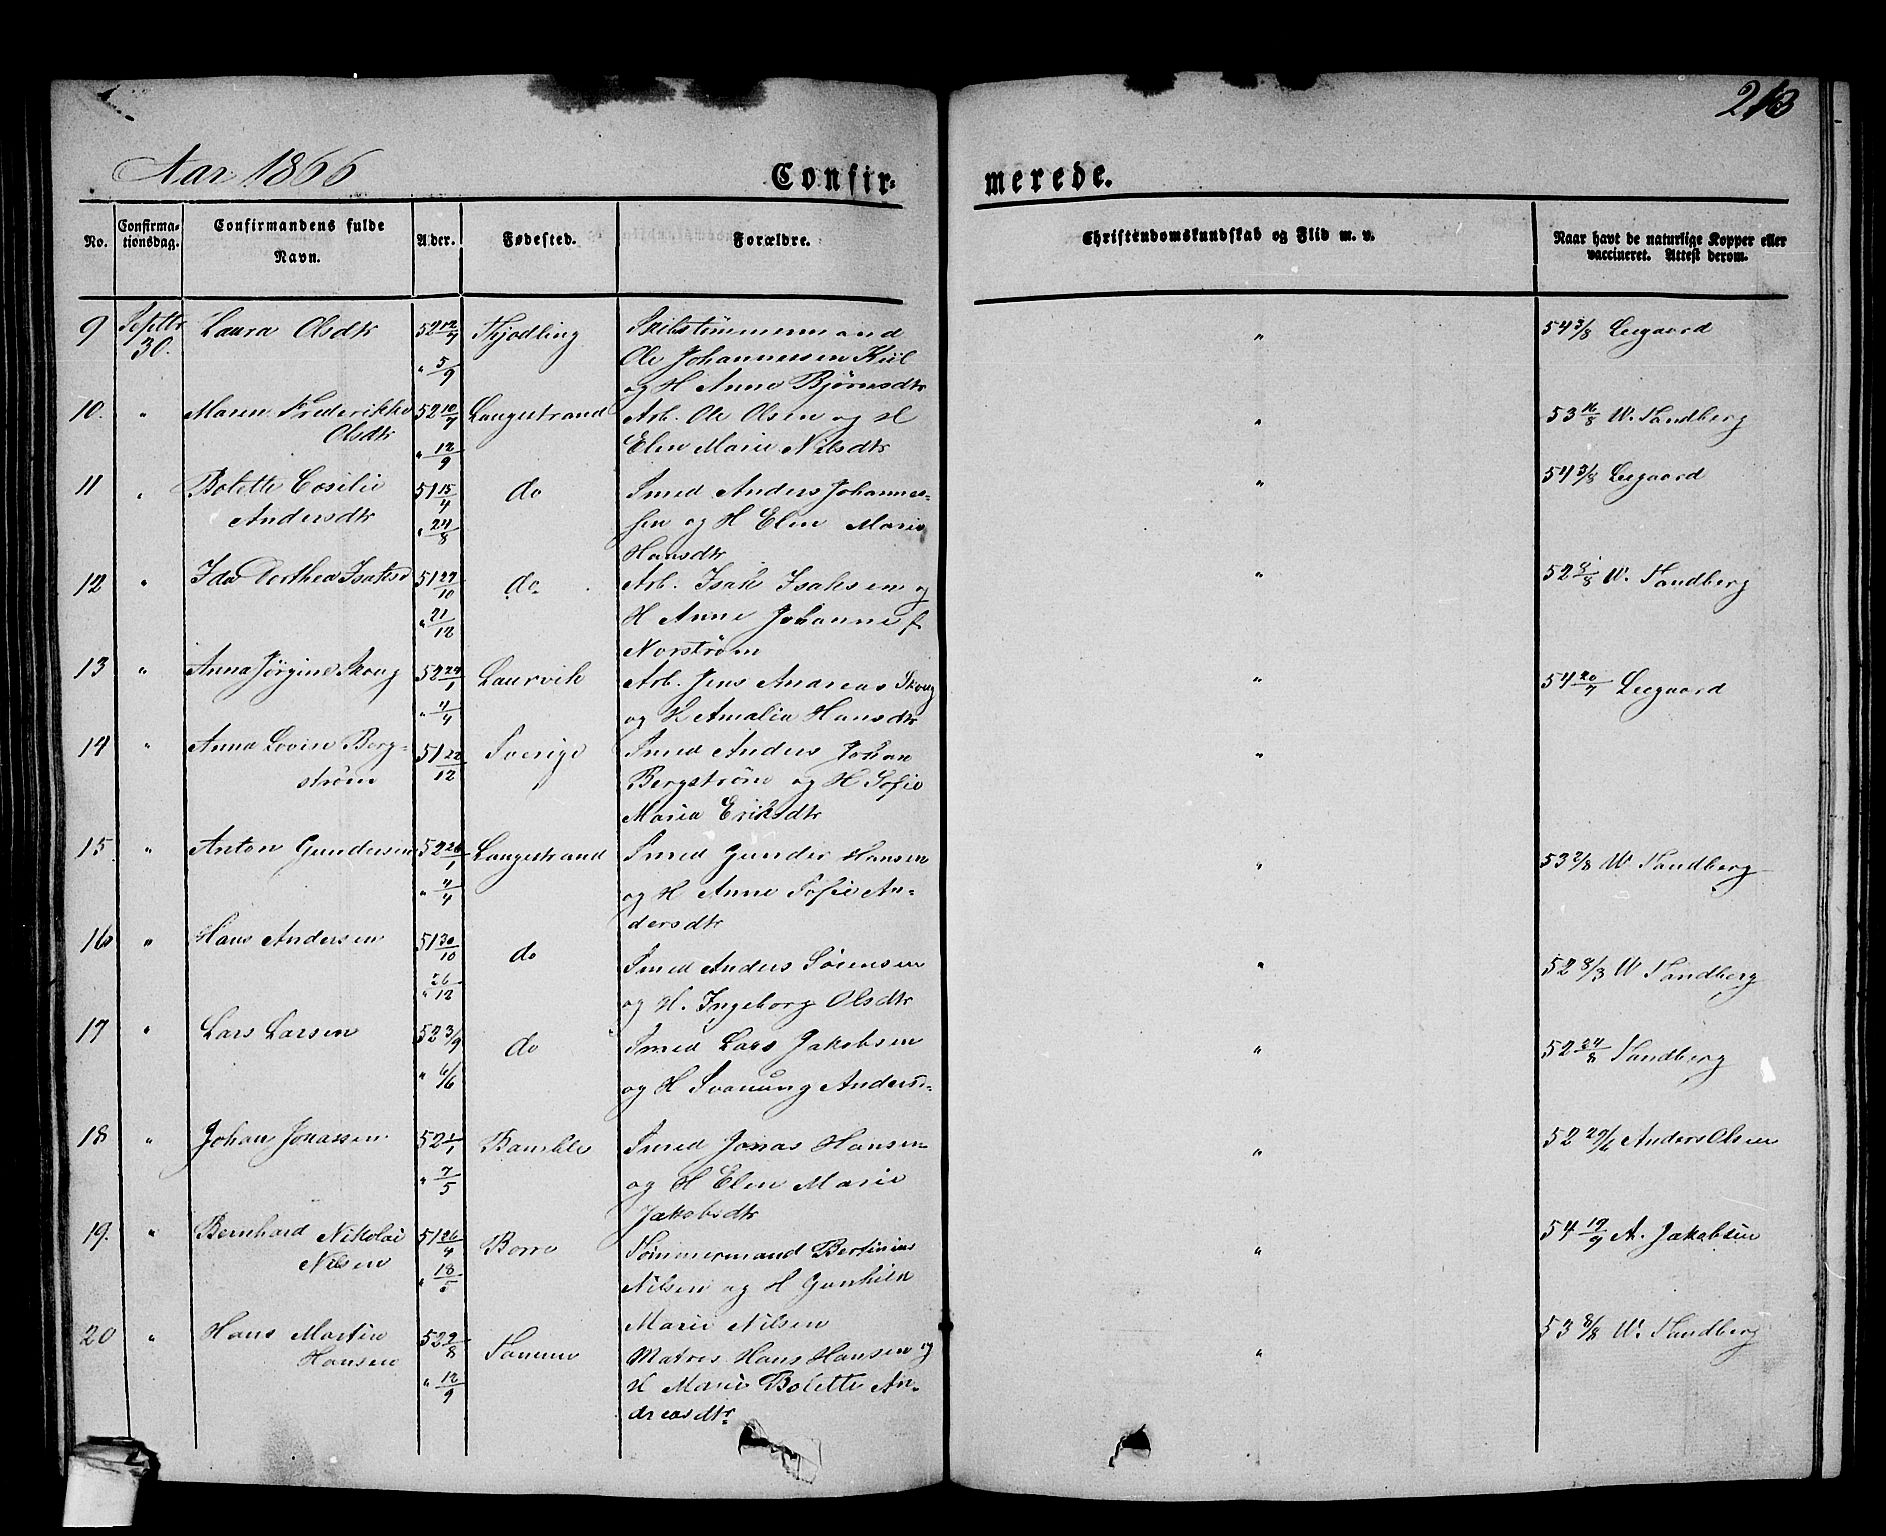 213
Aar 1866
Confir=
merede.
No.
Confirma-
tionsdag.
Confirmandens fulde
Navn.
Alder.
Fødested.
Forældre.
Christendomskundskab og Flid m. v.
Naar havt de naturlige Kopper eller
vaccineret. Attest derom.
9 Septbr Laura Olsdtr 52 12/7 Thjodling Skibstømmermand " 54 3/8 Leegaard
30. " 5/9 Ole Johannessen Kiil
og H Anne Bjørnsdtr
10. " Maren Frederikke 52 10/7 Langestrand Arb. Ole Olsen og H " 53 16/8 W. Sandberg
Olsdtr " 12/9 Elen Marie Nilsdtr
11 " Bolette Cesilie 51 15/4 do Smed Anders Johannes- " 54 3/8 Leegaard
Andersdtr " 24/8 sen og H Elen Marie
Hansdtr
12 " Ida Dorthea Isaksd 51 27/10 do. Arb. Isak Isaksen og " 52 8/8 W. Sandberg
" 21/12 H Anne Johanne f.
Norstrøm
13 " Anna Jørgine Skoug 52 24/1 Laurvik Arb. Jens Andreas Skoug " 54 20/7 Leegaard
" 4/4 og H Amalia Hansdtr
14 " Anna Lovise Berg- 51 22/12 Sverige Smed Anders Johan "
strøm Bergstrøm og H Sofie
Maria Eriksdtr
15 " Anton Gundersen 52 26/1 Langestrand Smed Gunder Hansen " 53 2/8 W Sandberg
" 4/4 og H Anne Sofie An-
dersdtr
16 " Hans Andersen 51 30/10 do Smed Anders Sørensen " 52 8/8 W Sandberg
" 26/12 og H. Ingeborg Olsdtr
17 " Lars Larsen 52 3/9 do Smed Lars Jakobsen " 52 24/8 Sandberg
" 6/6 og H Svanung Anders-
18 " Johan Jonassen 52 1/1 Bamble Smed Jonas Hansen " 52 29/6 Anders Olsen
" 7/5 og H Elen Marie
Jakobsdtr
19. " Bernhard Nikolai 51 26/4 Borre Tømmermand Bertinius " 54 19/9 A. Jakobsen
Nilsen " 18/5 Nilsen og H Gunhild
Marie Nilsen
20 " Hans Martin 52 2/8 Matros Hans Hansen og " 53 8/8 W. Sandberg
Hansen " 12/9 H Marie Bolette An-
dreasdtr